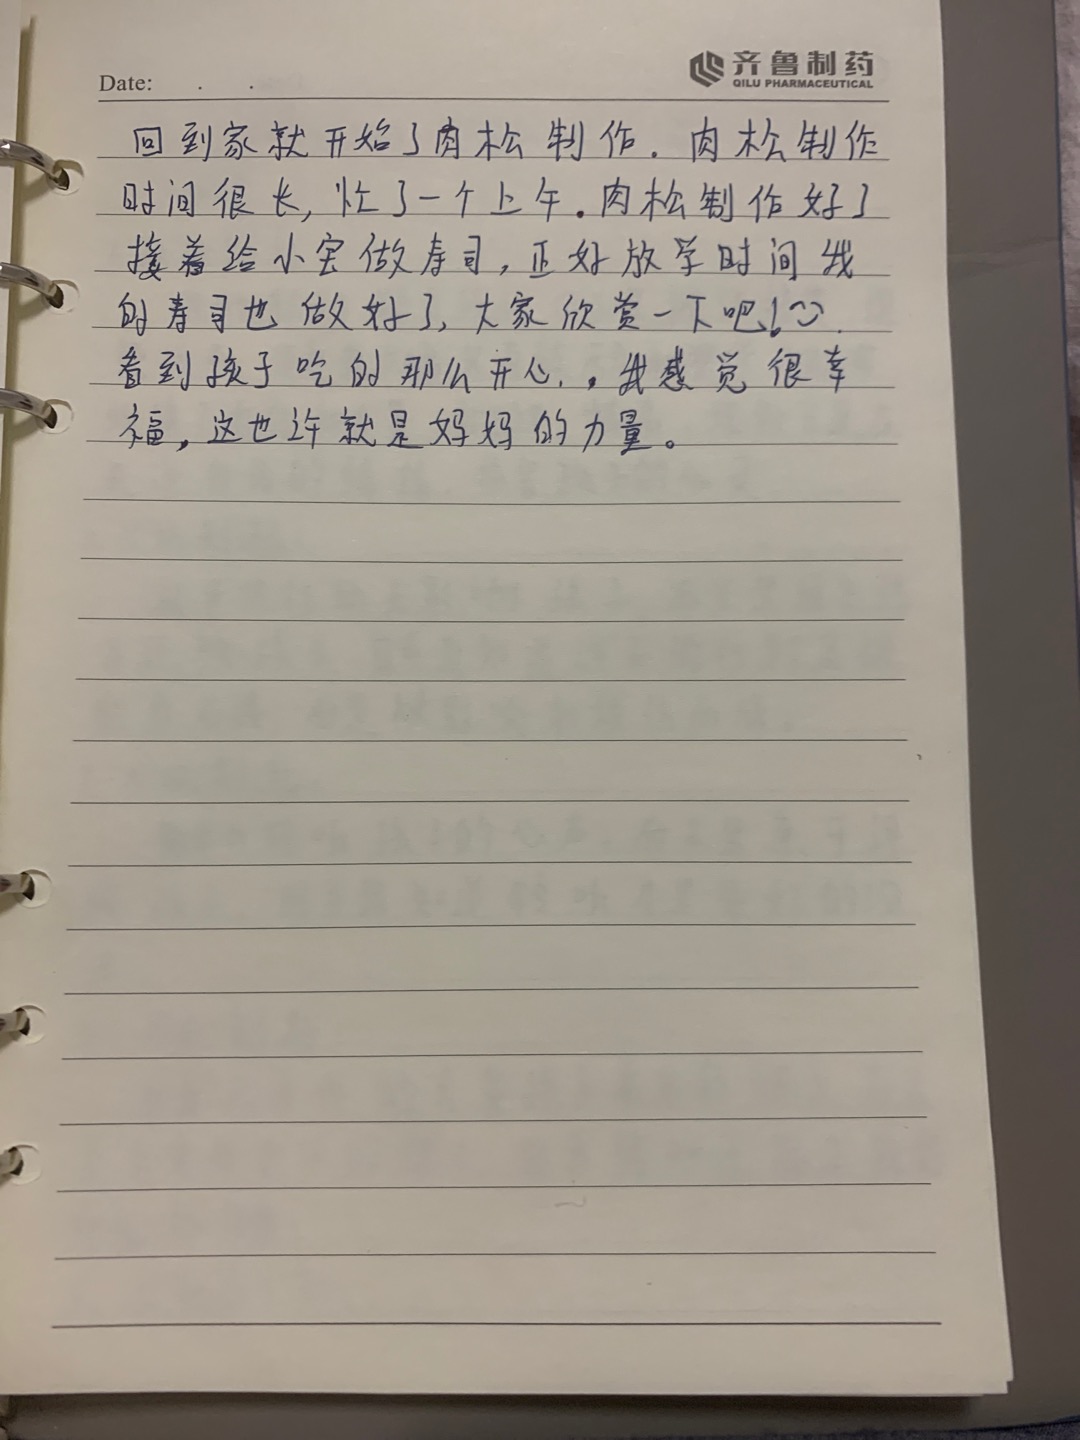 Date: . .
齐鲁制药
QILU PHARMACEUTICAL
回到家就开始了肉松制作. 肉松制作
时间很长, 忙了一个上午. 肉松制作好了
接着给小宝做寿司, 正好放学时间我
的寿司也做好了, 大家欣赏一下吧!
看到孩子吃的那么开心.. 我感觉很幸
福, 这也许就是妈妈的力量。